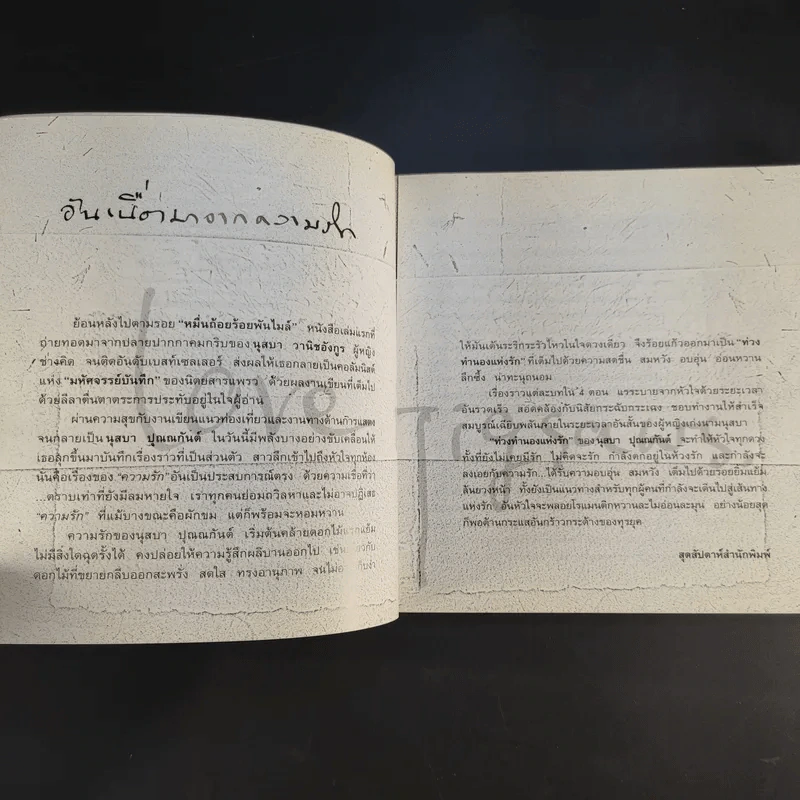 อันเนื่องมาจากความรัก
ย้อนหลังไปตามรอย “หมื่นถ้อยร้อยพันไมล์” หนังสือเล่มแรกที่
ถ่ายทอดมาจากปลายปากกาคมกริบของ นุสบา วานิชอังกูร ผู้หญิง
ช่างคิด จนติดอันดับเบสท์เซลเลอร์ ส่งผลให้เธอกลายเป็นคอลัมนิสต์
แห่ง “มหัศจรรย์บันทึก” ของนิตยสารแพรว ด้วยผลงานเขียนที่เต็มไป
ด้วยลีลาตื่นตาตระการประทับอยู่ในใจผู้อ่าน
ผ่านความสุขกับงานเขียนแนวท่องเที่ยวและงานทางด้านการแสดง
จนกลายเป็น นุสบา ปุณณกันต์ ในวันนี้มีพลังบางอย่างขับเคลื่อนให้
เธอลุกขึ้นมาบันทึกเรื่องราวที่เป็นส่วนตัว สาวลึกเข้าไปถึงหัวใจทุกห้อง
นั่นคือเรื่องของ “ความรัก” อันเป็นประสบการณ์ตรง ด้วยความเชื่อที่ว่า
...ตราบเท่าที่ยังมีลมหายใจ เราทุกคนย่อมถวิลหาและไม่อาจปฏิเสธ
“ความรัก” ที่แม้บางขณะคือผักขม แต่ก็พร้อมจะหอมหวาน
ความรักของนุสบา ปุณณกันต์ เริ่มต้นคล้ายดอกไม้แรกแย้ม
ไม่มีสิ่งใดฉุดรั้งได้ คงปล่อยให้ความรู้สึกผลิบานออกไป เช่นเดียวกับ
ดอกไม้ที่ขยายกลีบออกสะพรั่ง สดใส ทรงอานุภาพ จนไม่อาจ
ให้มันเต้นระริกระรัวไหวในใจดวงเดียว จึงร้อยแก้วออกมาเป็น “ท่วง
ทำนองแห่งรัก” ที่เต็มไปด้วยความสดชื่น สมหวัง อบอุ่น อ่อนหวาน
ลึกซึ้ง น่าทะนุถนอม
เรื่องราวแต่ละบทใน 4 ตอน แรระบายจากหัวใจด้วยระยะเวลา
อันรวดเร็ว สอดคล้องกับนิสัยกระฉับกระเฉง ชอบทำงานให้สำเร็จ
สมบูรณ์เฉียบพลันภายในระยะเวลาอันสั้นของผู้หญิงเก่งนามนุสบา
“ท่วงทำนองแห่งรัก” ของ นุสบา ปุณณกันต์ จะทำให้หัวใจทุกดวง
ทั้งที่ยังไม่เคยมีรัก ไม่คิดจะรัก กำลังตกอยู่ในห้วงรัก และกำลังจะ
ลงเอยกับความรัก...ได้รับความอบอุ่น สมหวัง เต็มไปด้วยรอยยิ้มแย้ม
สันยวงหน้า ทั้งยังเป็นแนวทางสำหรับทุกผู้คนที่กำลังจะเดินไปสู่เส้นทาง
แห่งรัก อันหัวใจจะพลอยโรแมนติกหวานละไมอ่อนละมุน อย่างน้อยสุด
ก็พอต้านกระแสอันกร้าวกระด้างของทุรยุค
สุดสัปดาห์สำนักพิมพ์